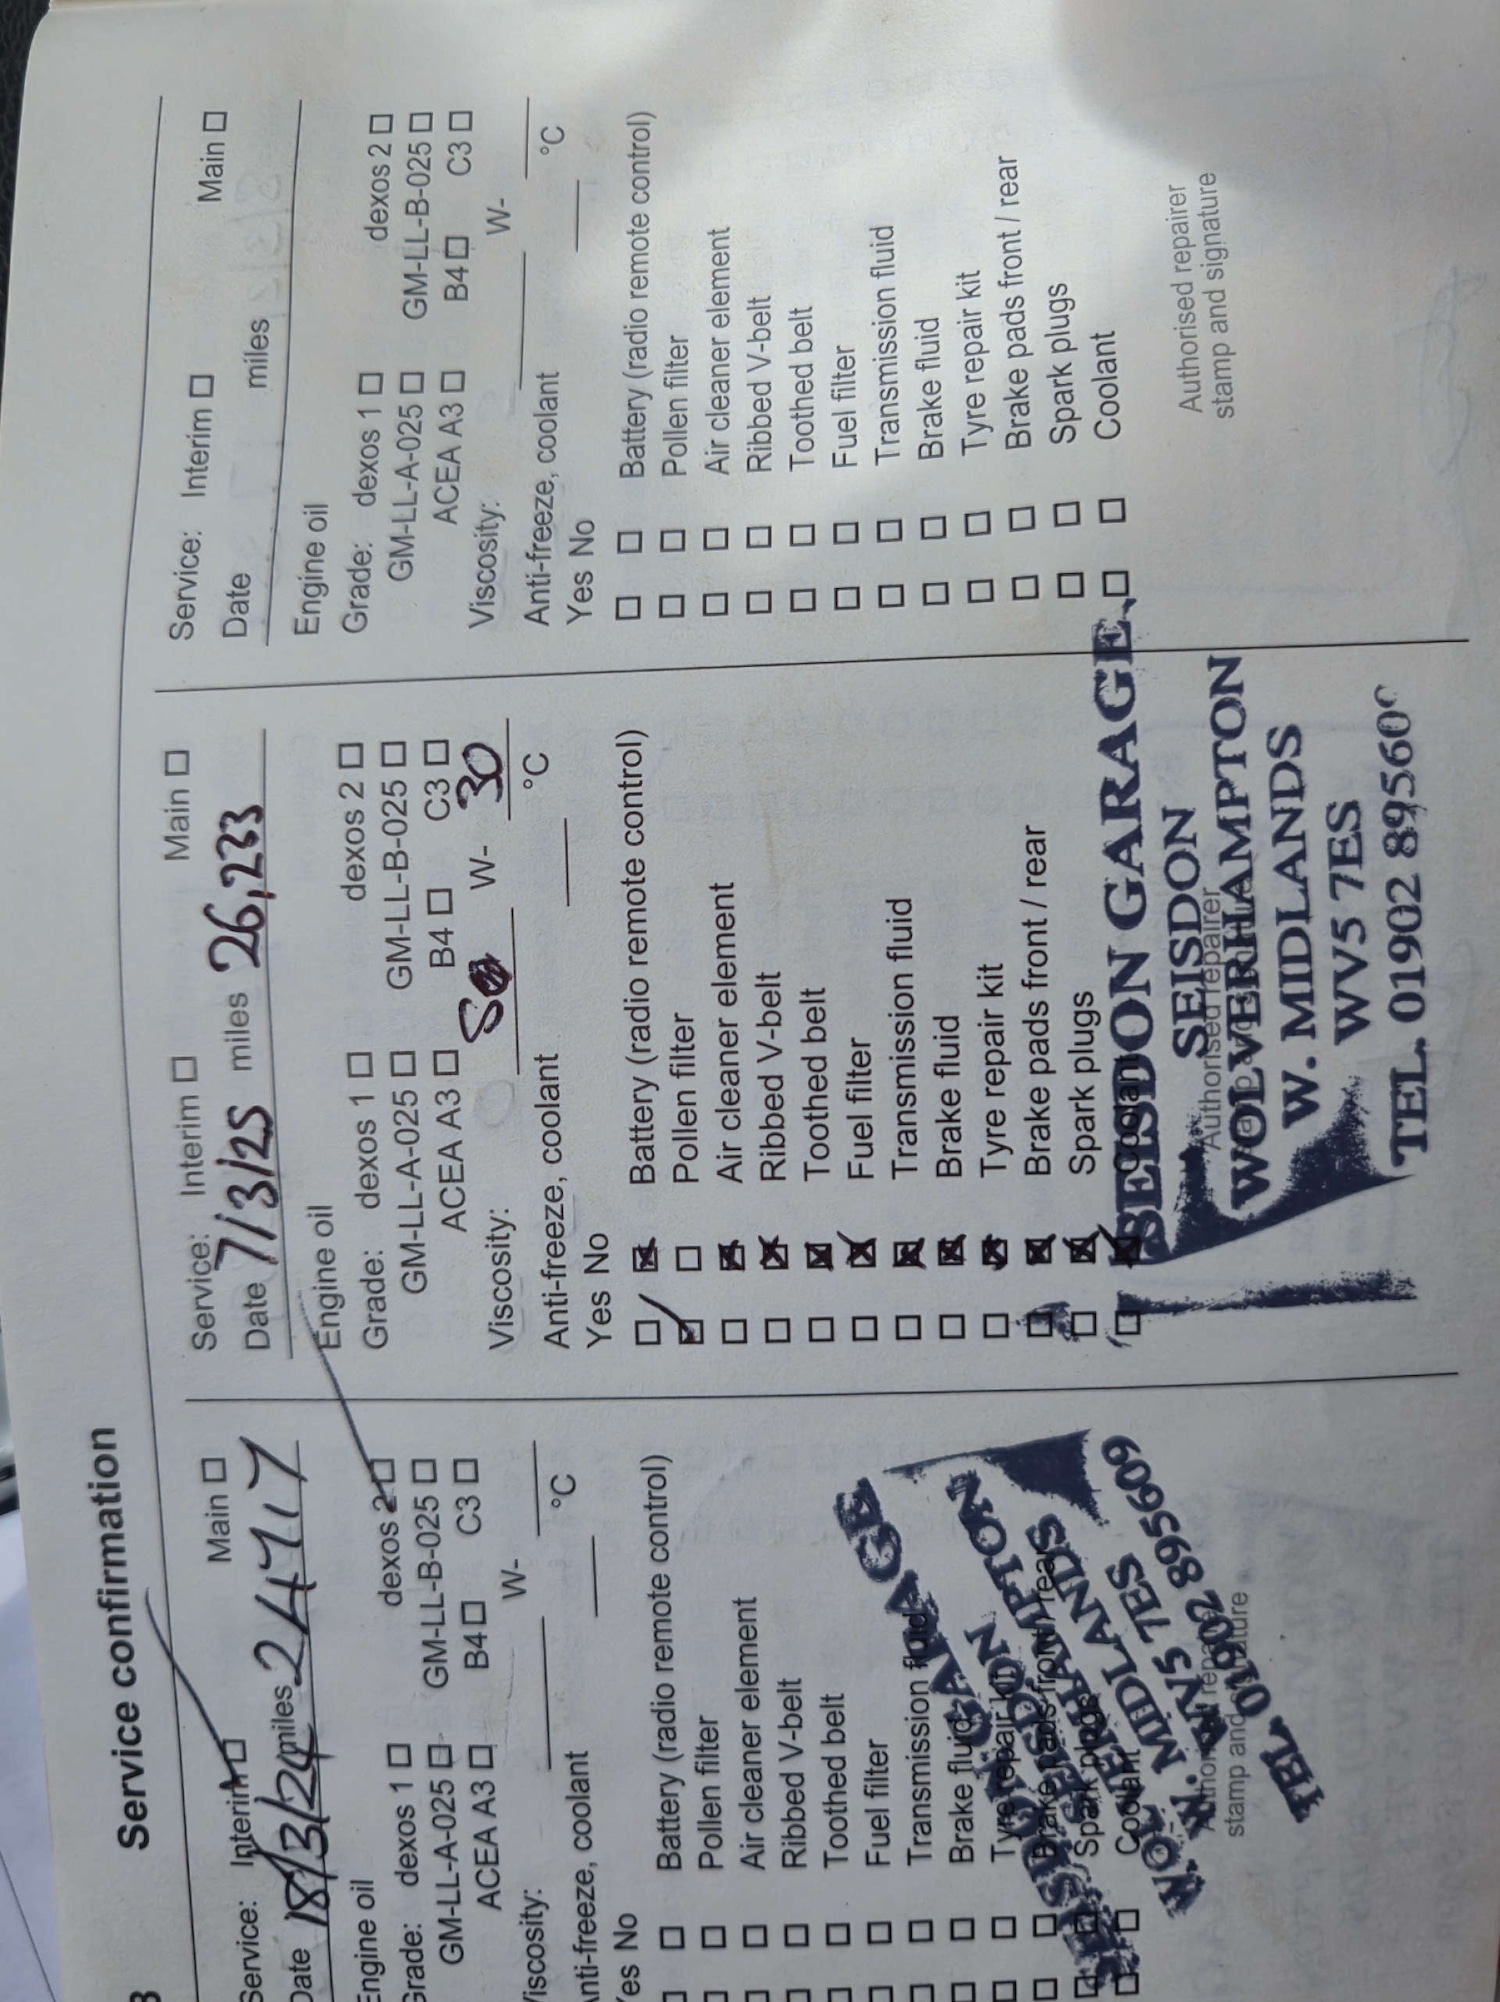 Service confirmation
Service: Interim ☐ Main ☐
Date 18/3/24 miles 24717
Engine oil
Grade: dexos 1 ☐ dexos 2 ☐
GM-LL-A-025 ☐ GM-LL-B-025 ☐
ACEA A3 ☐ B4 ☐ C3 ☐
Viscosity: W-
Anti-freeze, coolant °C
Yes No
☐ ☐ Battery (radio remote control)
☐ ☐ Pollen filter
☐ ☐ Air cleaner element
☐ ☐ Ribbed V-belt
☐ ☐ Toothed belt
☐ ☐ Fuel filter
☐ ☐ Transmission fluid
☐ ☐ Brake fluid
☐ ☐ Tyre repair kit
☐ ☐ Brake pads front / rear
☐ ☐ Spark plugs
☐ ☐ Coolant
Authorised repairer
stamp and signature
SEISDON GARAGE
SEISDON
WOLVERHAMPTON
W. MIDLANDS
WV5 7ES
TEL. 01902 895609
Service: Interim ☐ Main ☐
Date 7/3/25 miles 26,233
Engine oil
Grade: dexos 1 ☐ dexos 2 ☐
GM-LL-A-025 ☐ GM-LL-B-025 ☐
ACEA A3 ☐ B4 ☐ C3 ☐
Viscosity: W- 30
Anti-freeze, coolant °C
Yes No
☐ ☒ Battery (radio remote control)
☑ ☐ Pollen filter
☐ ☒ Air cleaner element
☐ ☒ Ribbed V-belt
☐ ☒ Toothed belt
☐ ☒ Fuel filter
☐ ☒ Transmission fluid
☐ ☒ Brake fluid
☐ ☒ Tyre repair kit
☐ ☒ Brake pads front / rear
☐ ☒ Spark plugs
☐ ☒ Coolant
Authorised repairer
SEISDON GARAGE
SEISDON
WOLVERHAMPTON
W. MIDLANDS
WV5 7ES
TEL. 01902 895609
Service: Interim ☐ Main ☐
Date miles
Engine oil
Grade: dexos 1 ☐ dexos 2 ☐
GM-LL-A-025 ☐ GM-LL-B-025 ☐
ACEA A3 ☐ B4 ☐ C3 ☐
Viscosity: W-
Anti-freeze, coolant °C
Yes No
☐ ☐ Battery (radio remote control)
☐ ☐ Pollen filter
☐ ☐ Air cleaner element
☐ ☐ Ribbed V-belt
☐ ☐ Toothed belt
☐ ☐ Fuel filter
☐ ☐ Transmission fluid
☐ ☐ Brake fluid
☐ ☐ Tyre repair kit
☐ ☐ Brake pads front / rear
☐ ☐ Spark plugs
☐ ☐ Coolant
Authorised repairer
stamp and signature